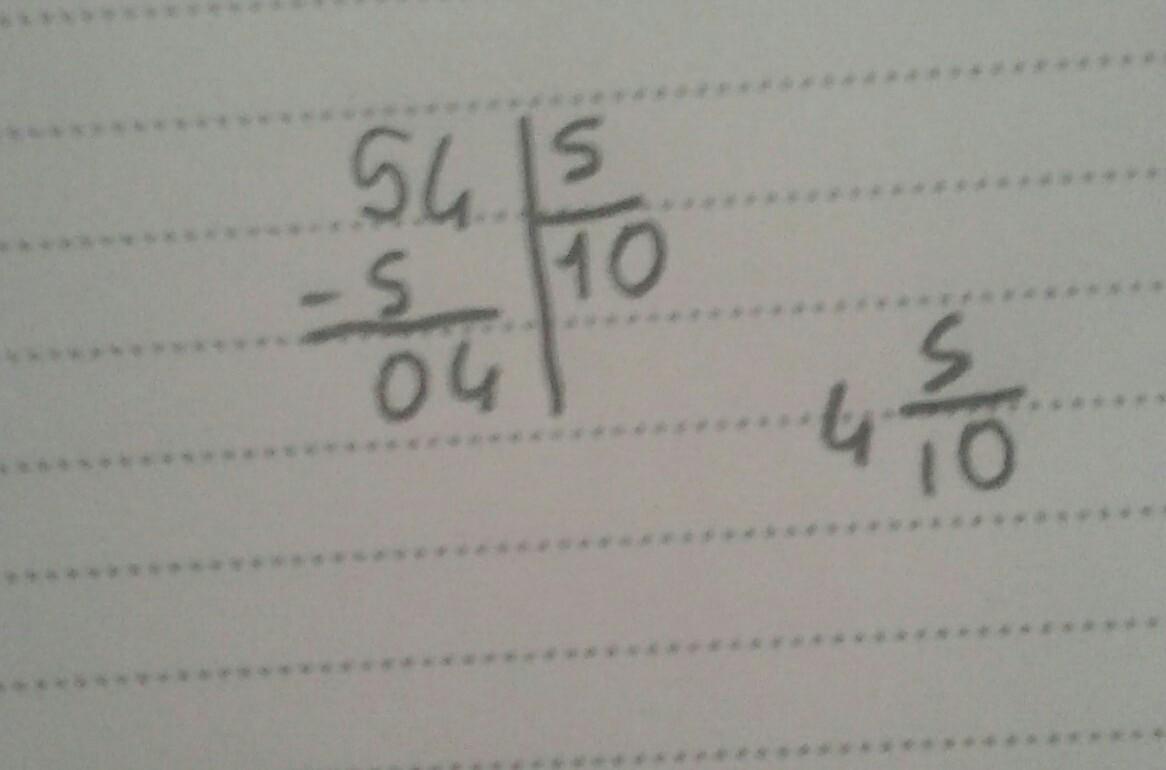 54 | 5
- 5 | 10
04
4 5/10